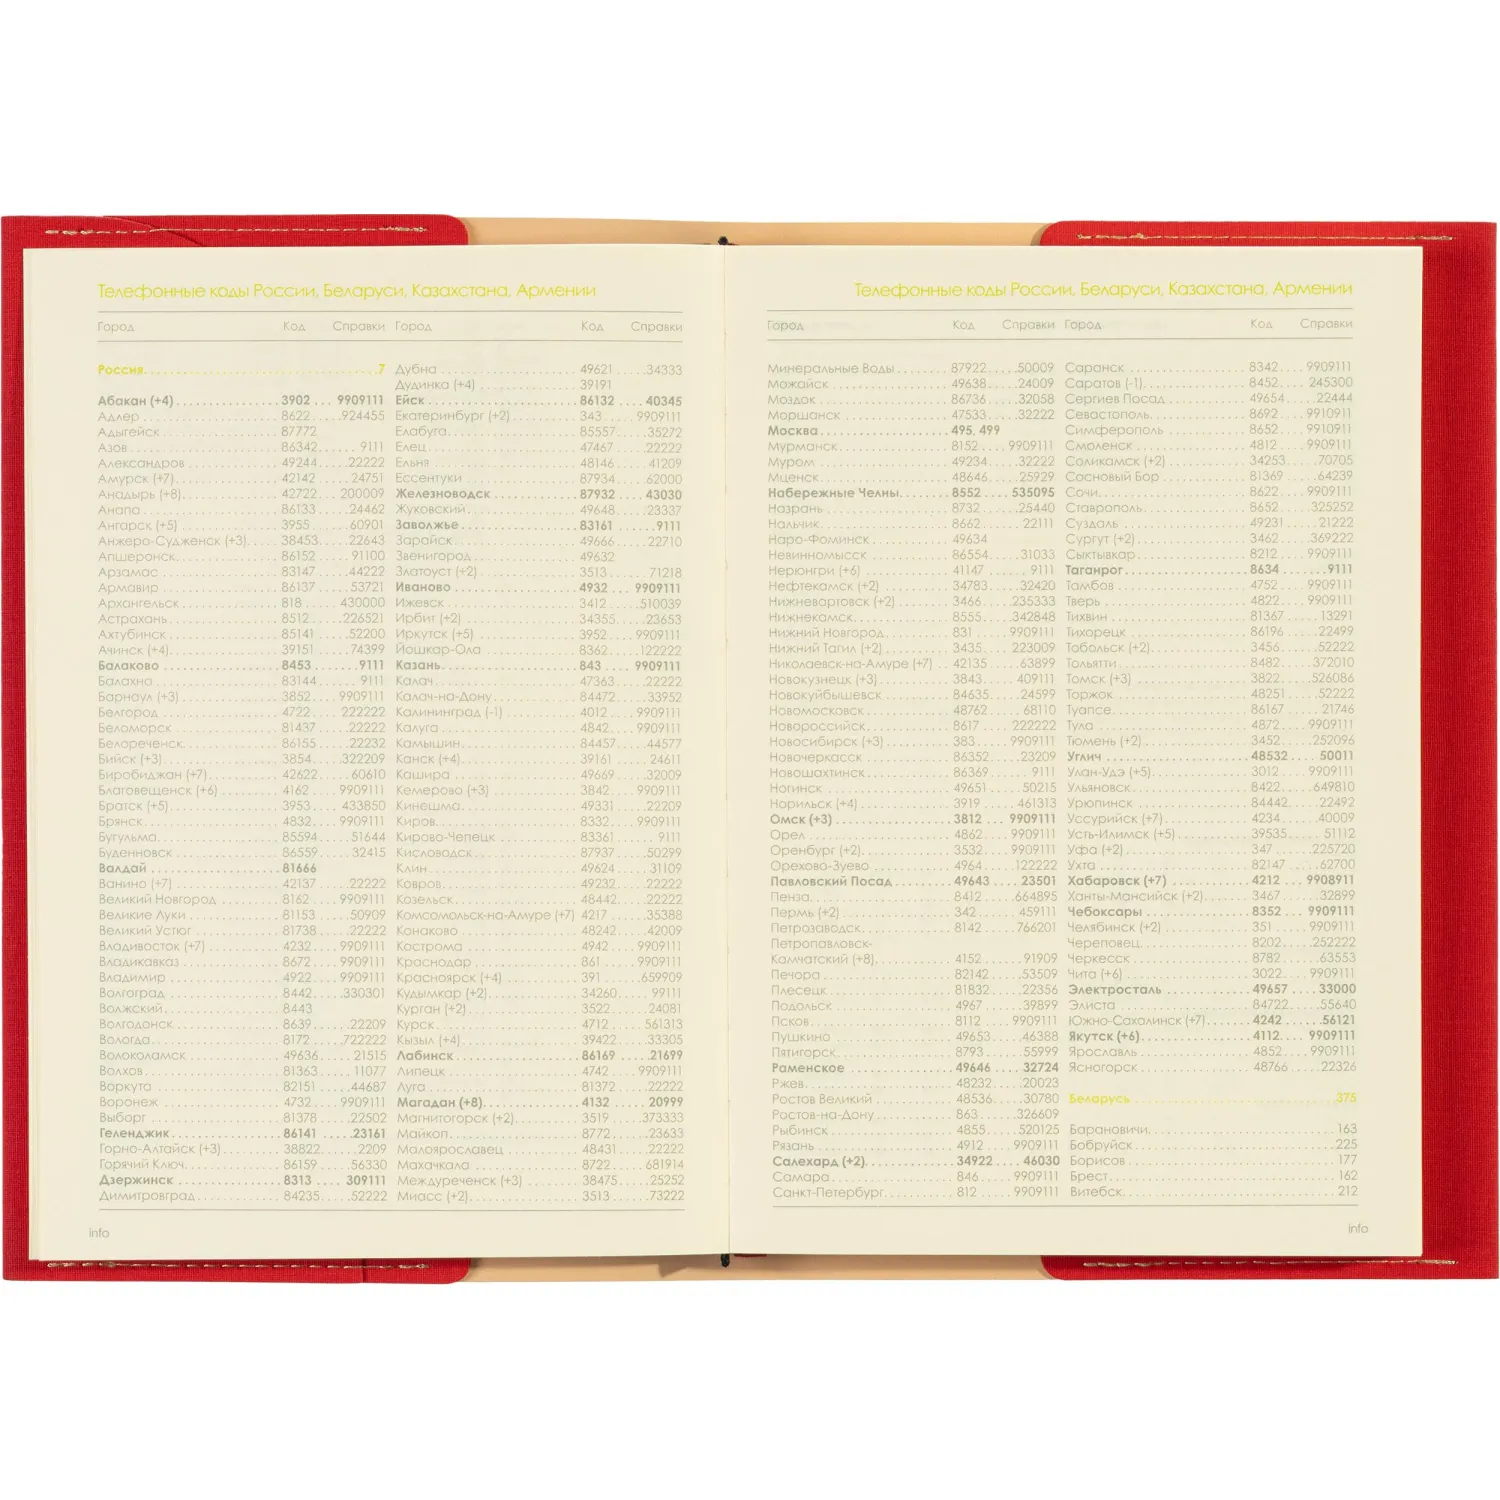 Телефонные коды России, Беларуси, Казахстана, Армении
Город Код Справки Город Код Справки
Россия 7
Абакан (+4) 3902 9909111
Адлер 8622 924455
Адыгейск 87772
Азов 86342 9111
Александров 49244 22222
Амурск (+7) 42142 24751
Анадырь (+8) 42722 200009
Анапа 86133 24462
Ангарск (+5) 3955 60901
Анжеро-Судженск (+3) 38453 22643
Апшеронск 86152 91100
Арзамас 83147 44222
Армавир 86137 53721
Архангельск 818 430000
Астрахань 8512 226521
Ахтубинск 85141 52200
Ачинск (+4) 39151 74399
Балаково 8453 9111
Балахна 83144 9111
Барнаул (+3) 3852 9909111
Белгород 4722 222222
Беломорск 81437 22222
Белореченск 86155 22232
Бийск (+3) 3854 322209
Биробиджан (+7) 42622 60610
Благовещенск (+6) 4162 9909111
Братск (+5) 3953 433850
Брянск 4832 9909111
Бугульма 85594 51644
Буденновск 86559 32415
Валдай 81666
Ванино (+7) 42137 22222
Великий Новгород 8162 9909111
Великие Луки 81153 50909
Великий Устюг 81738 22222
Владивосток (+7) 4232 9909111
Владикавказ 8672 9909111
Владимир 4922 9909111
Волгоград 8442 330301
Волжский 8443
Волгодонск 8639 22209
Вологда 8172 722222
Волоколамск 49636 21515
Волхов 81363 11077
Воркута 82151 44687
Воронеж 4732 9909111
Выборг 81378 22502
Геленджик 86141 23161
Горно-Алтайск (+3) 38822 2209
Горячий Ключ 86159 56330
Дзержинск 8313 309111
Димитровград 84235 52222
Дубна 49621 34333
Дудинка (+4) 39191
Ейск 86132 40345
Екатеринбург (+2) 343 9909111
Елабуга 85557 35272
Елец 47467 22222
Ельня 48146 41209
Ессентуки 87934 62000
Железноводск 87932 43030
Жуковский 49648 23337
Заволжье 83161 9111
Зарайск 49666 22710
Звенигород 49632
Златоуст (+2) 3513 71218
Иваново 4932 9909111
Ижевск 3412 510039
Ирбит (+2) 34355 23653
Иркутск (+5) 3952 9909111
Йошкар-Ола 8362 122222
Казань 843 9909111
Калач 47363 22222
Калач-на-Дону 84472 33952
Калининград (-1) 4012 9909111
Калуга 4842 9909111
Камышин 84457 44577
Канск (+4) 39161 24611
Кашира 49669 32009
Кемерово (+3) 3842 9909111
Кинешма 49331 22209
Киров 8332 9909111
Кирово-Чепецк 83361 9111
Кисловодск 87937 50299
Клин 49624 31109
Ковров 49232 22222
Козельск 48442 22222
Комсомольск-на-Амуре (+7) 4217 35388
Конаково 48242 42009
Кострома 4942 9909111
Краснодар 861 9909111
Красноярск (+4) 391 659909
Кудымкар (+2) 34260 99111
Курган (+2) 3522 24081
Курск 4712 561313
Кызыл (+4) 39422 33305
Лабинск 86169 21699
Липецк 4742 9909111
Луга 81372 22222
Магадан (+8) 4132 20999
Магнитогорск (+2) 3519 373333
Майкоп 8772 23633
Малоярославец 48431 22222
Махачкала 8722 681914
Междуреченск (+3) 38475 25252
Миасс (+2) 3513 73222
info
Телефонные коды России, Беларуси, Казахстана, Армении
Город Код Справки Город Код Справки
Минеральные Воды 87922 50009
Можайск 49638 24009
Моздок 86736 32058
Моршанск 47533 32222
Москва 495, 499
Мурманск 8152 9909111
Муром 49234 32222
Мценск 48646 25929
Набережные Челны 8552 535095
Назрань 8732 25440
Нальчик 8662 22111
Наро-Фоминск 49634
Невинномысск 86554 31033
Нерюнгри (+6) 41147 9111
Нефтекамск (+2) 34783 32420
Нижневартовск (+2) 3466 235333
Нижнекамск 8555 342848
Нижний Новгород 831 9909111
Нижний Тагил (+2) 3435 223009
Николаевск-на-Амуре (+7) 42135 63899
Новокузнецк (+3) 3843 409111
Новокуйбышевск 84635 24599
Новомосковск 48762 68110
Новороссийск 8617 222222
Новосибирск (+3) 383 9909111
Новочеркасск 86352 23209
Новошахтинск 86369 9111
Ногинск 49651 50215
Норильск (+4) 3919 461313
Омск (+3) 3812 9909111
Орел 4862 9909111
Оренбург (+2) 3532 9909111
Орехово-Зуево 4964 122222
Павловский Посад 49643 23501
Пенза 8412 664895
Пермь (+2) 342 459111
Петрозаводск 8142 766201
Петропавловск-
Камчатский (+8) 4152 91909
Печора 82142 53509
Плесецк 81832 22356
Подольск 4967 39899
Псков 8112 9909111
Пушкино 49653 46388
Пятигорск 8793 55999
Раменское 49646 32724
Ржев 48232 20023
Ростов Великий 48536 30780
Ростов-на-Дону 863 326609
Рыбинск 4855 520125
Рязань 4912 9909111
Салехард (+2) 34922 46030
Самара 846 9909111
Санкт-Петербург 812 9909111
Саранск 8342 9909111
Саратов (-1) 8452 245300
Сергиев Посад 49654 22444
Севастополь 8692 9910911
Симферополь 8652 9910911
Смоленск 4812 9909111
Соликамск (+2) 34253 70705
Сосновый Бор 81369 64239
Сочи 8622 9909111
Ставрополь 8652 325252
Суздаль 49231 21222
Сургут (+2) 3462 369222
Сыктывкар 8212 9909111
Таганрог 8634 9111
Тамбов 4752 9909111
Тверь 4822 9909111
Тихвин 81367 13291
Тихорецк 86196 22499
Тобольск (+2) 3456 52222
Тольятти 8482 372010
Томск (+3) 3822 526086
Торжок 48251 52222
Туапсе 86167 21746
Тула 4872 9909111
Тюмень (+2) 3452 252096
Углич 48532 50011
Улан-Удэ (+5) 3012 9909111
Ульяновск 8422 649810
Урюпинск 84442 22492
Уссурийск (+7) 4234 40009
Усть-Илимск (+5) 39535 51112
Уфа (+2) 347 225720
Ухта 82147 62700
Хабаровск (+7) 4212 9908911
Ханты-Мансийск (+2) 3467 32899
Чебоксары 8352 9909111
Челябинск (+2) 351 9909111
Череповец 8202 252222
Черкесск 8782 63553
Чита (+6) 3022 9909111
Электросталь 49657 33000
Элиста 84722 55640
Южно-Сахалинск (+7) 4242 56121
Якутск (+6) 4112 9909111
Ярославль 4852 9909111
Ясногорск 48766 22326
Беларусь 375
Барановичи 163
Бобруйск 225
Борисов 177
Брест 162
Витебск 212
info